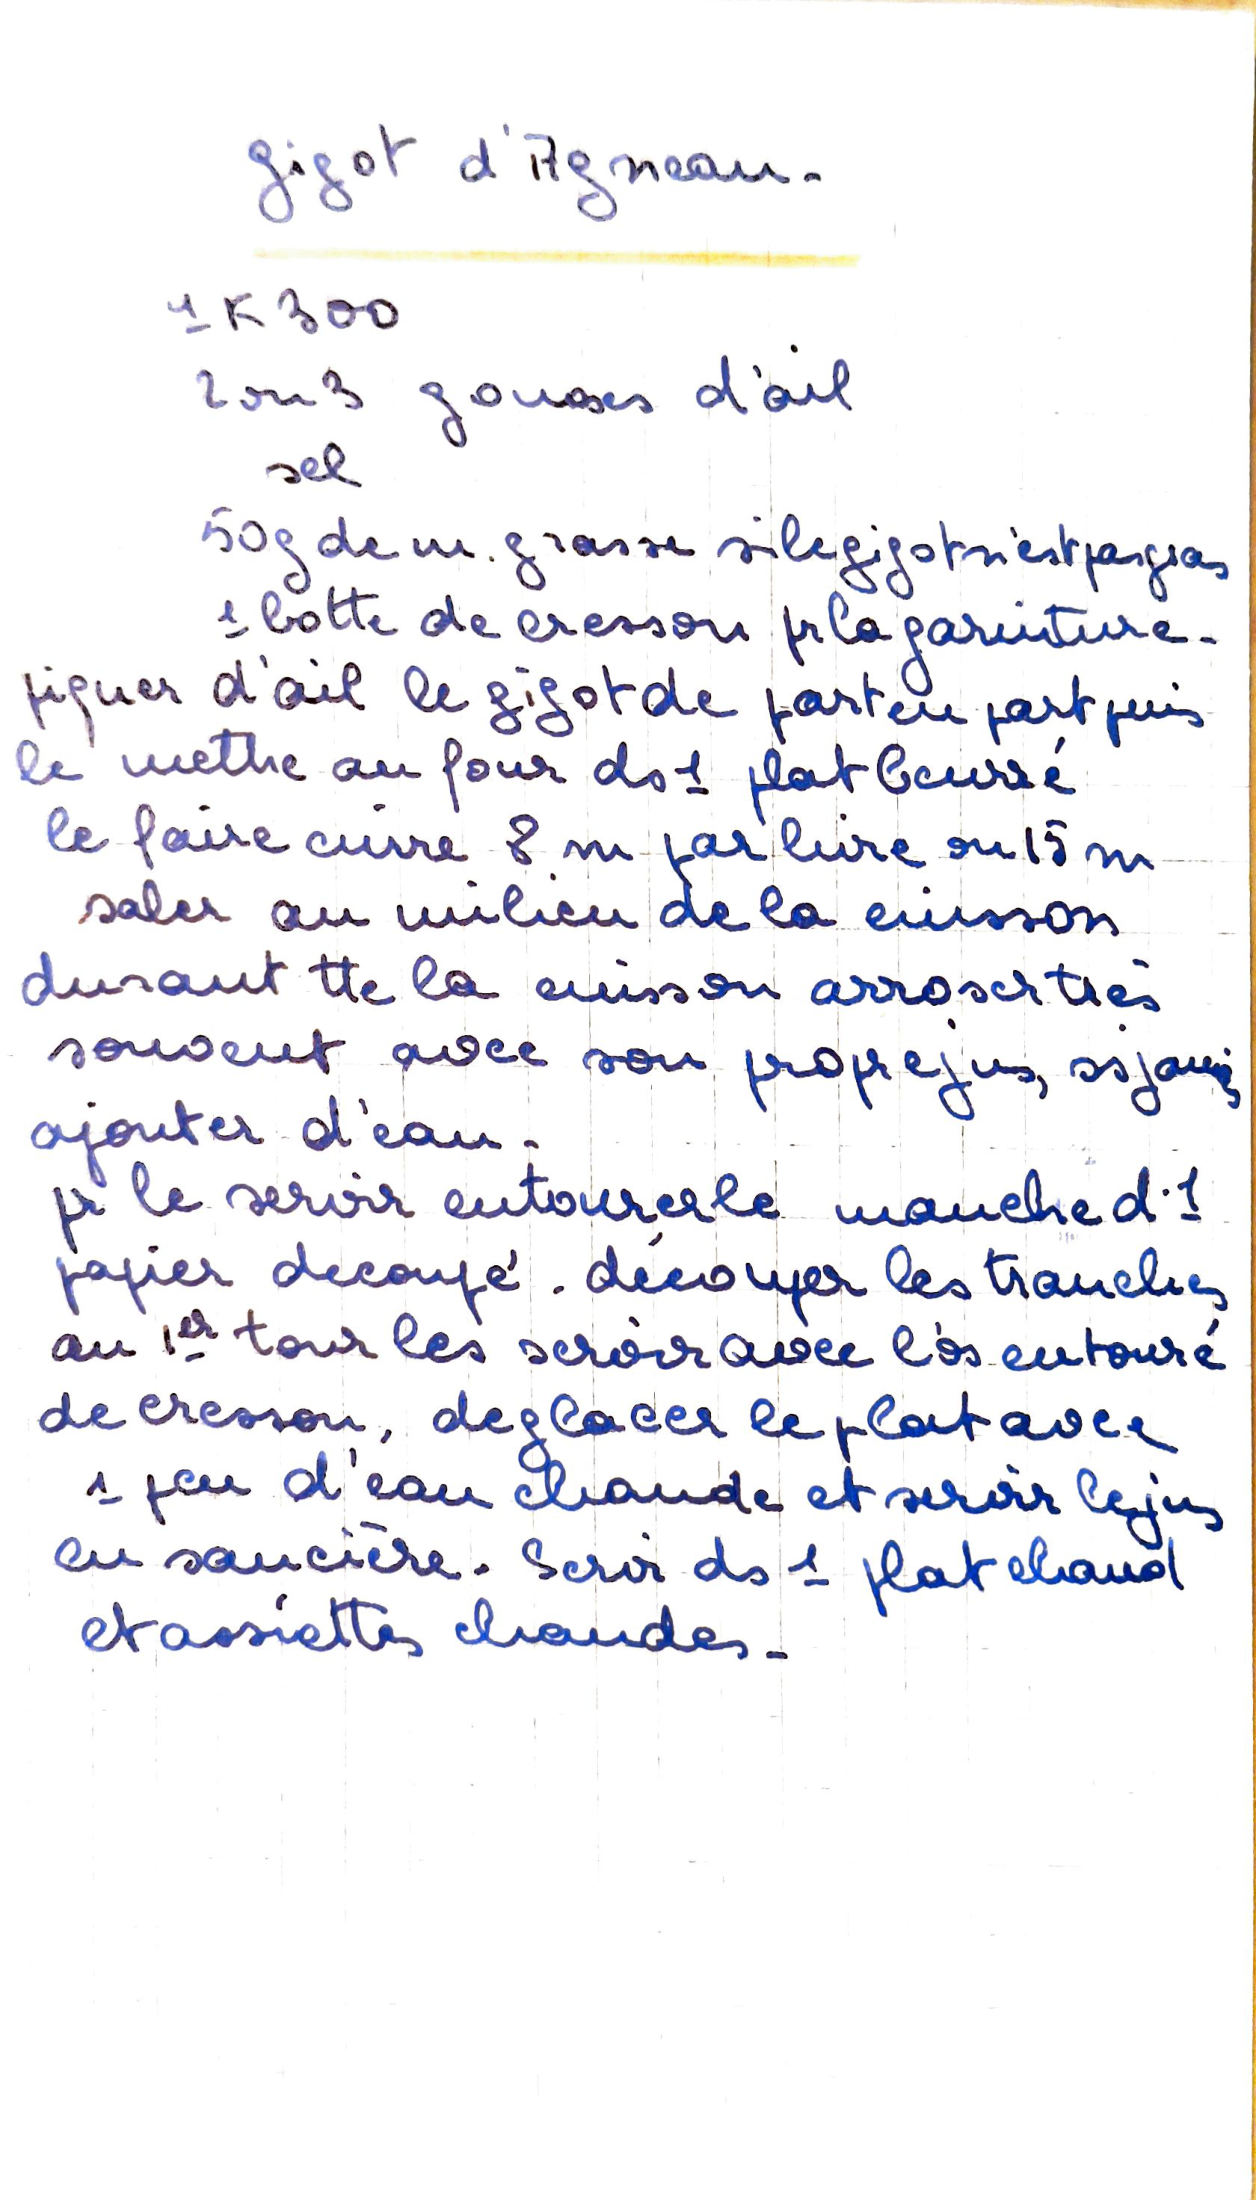 gigot d'Agneau.
1 K 300
2 ou 3 gousses d'ail
sel
50g de m. grasse si le gigot n'est pas gras
1 botte de cresson pr la garniture.
piquer d'ail le gigot de part en part puis
le mettre au four ds 1 plat beurré
le faire cuire 8 m par livre ou 15 m
saler au milieu de la cuisson
durant tte la cuisson arroser très
souvent avec son propre jus, ss jamais
ajouter d'eau.
pr le servir entourer le manche d'1
papier decoupé. découper les tranches
au 1er tour les servir avec l'os entouré
de cresson, deglacer le plat avec
1 peu d'eau chaude et servir le jus
en saucière. Servir ds 1 plat chaud
et assiettes chaudes_